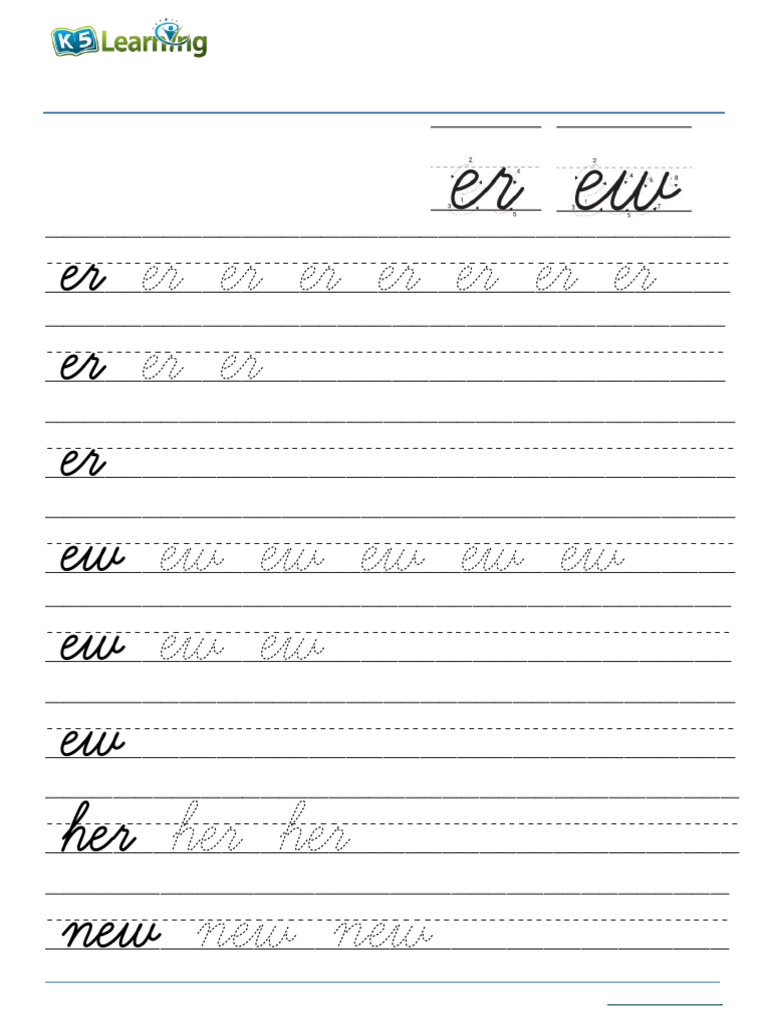 K5 Learning
er ew
er er er er er er er er
er er er
er
ew ew ew ew ew ew
ew ew ew
ew
her her her
new new new